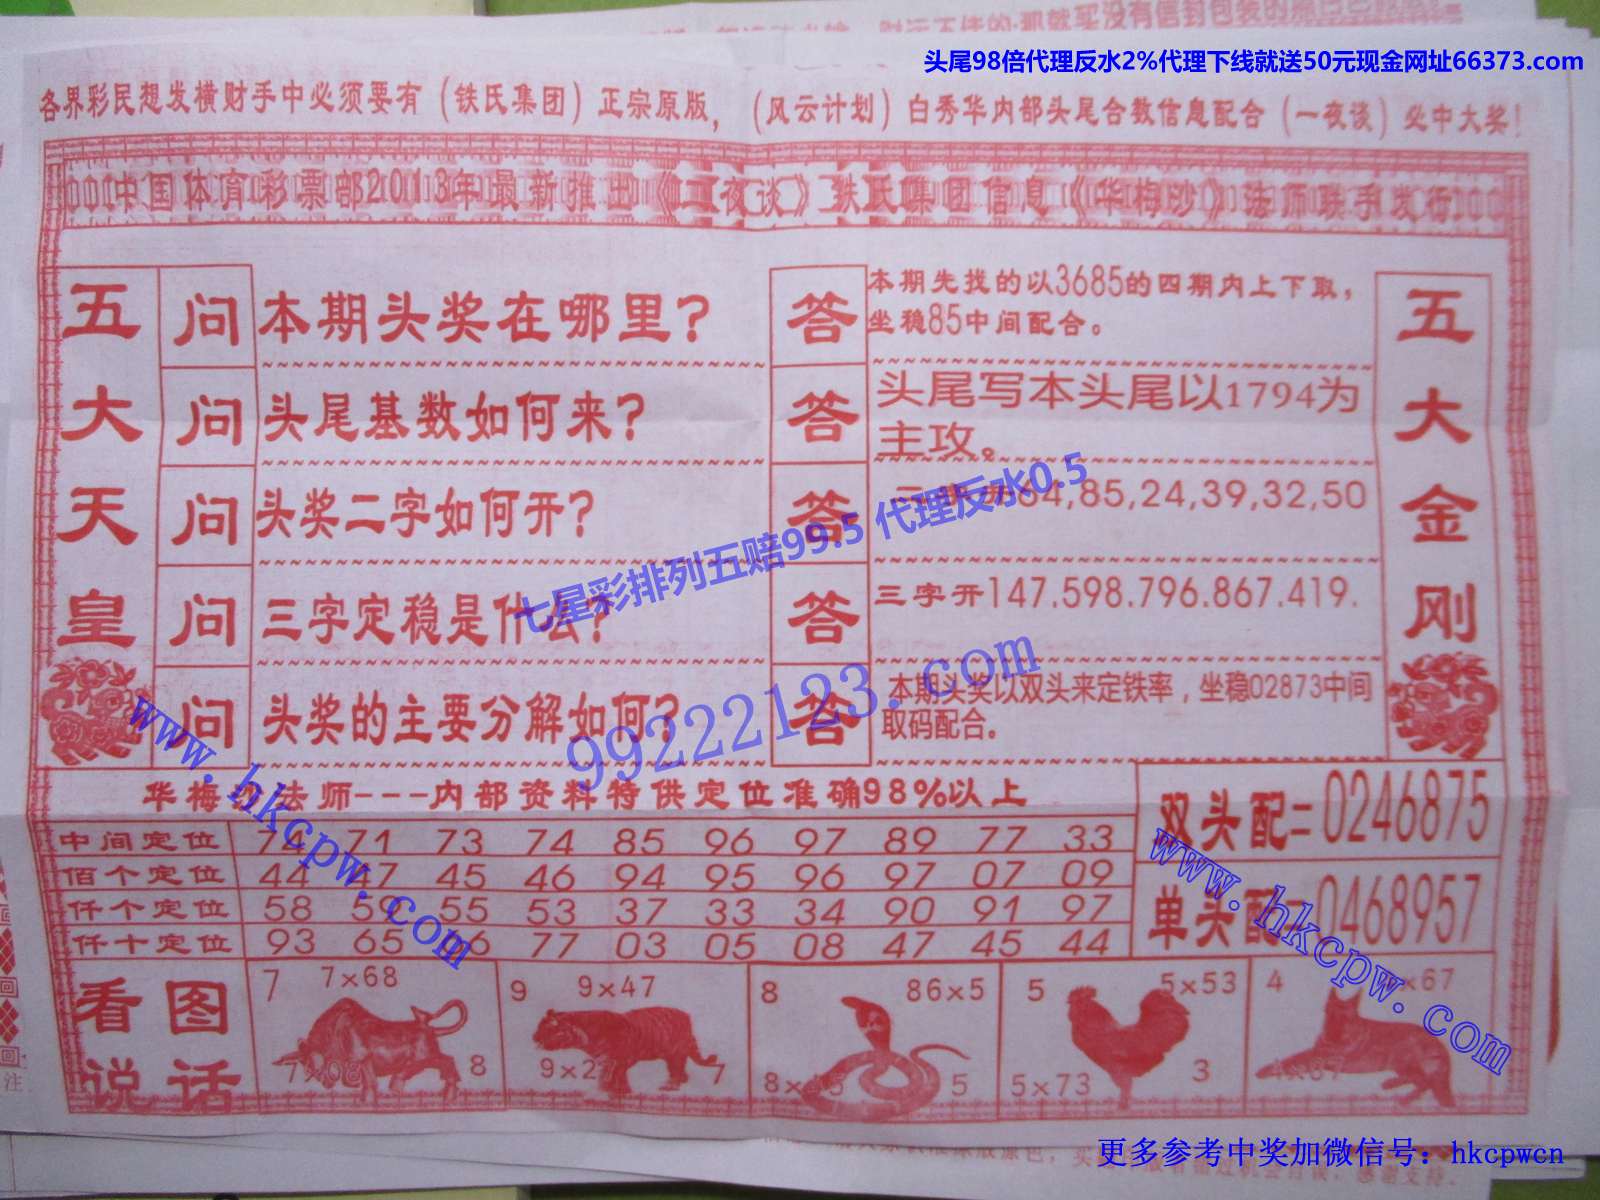 头尾98倍代理反水2%代理下线就送50元现金网址66373.com
各界彩民想发横财手中必须要有（铁氏集团）正宗原版，（风云计划）白秀华内部头尾合数信息配合（一夜谈）必中大奖！
中国体育彩票部2013年最新推出《一夜谈》铁氏集团信息《华梅沙》法师联手发行
五大天皇
问 本期头奖在哪里？
答 本期先找的以3685的四期内上下取，
坐稳85中间配合。
问 头尾基数如何来？
答 头尾写本头尾以1794为
主攻。
问 头奖二字如何开？
答 64,85,24,39,32,50
问 三字定稳是什么？
答 三字开147.598.796.867.419.
问 头奖的主要分解如何？
答 本期头奖以双头来定铁率，坐稳02873中间
取码配合。
五大金刚
七星彩排列五赔99.5 代理反水0.5
99222123.com
www.hkcpw.com
华梅 法师---内部资料特供定位准确98%以上
中间定位 74 71 73 74 85 96 97 89 77 33
佰个定位 44 47 45 46 94 95 96 97 07 09
仟个定位 58 59 55 53 37 33 34 90 91 97
仟十定位 93 65 66 77 03 05 08 47 45 44
双头配=0246875
单头配=0468957
www.hkcpw.com
看图
说话
7 7×68
7×08 8
9 9×47
9×27 7
8 86×5
8×45 5
5 5×53
5×73 3
4 ×67
4×87
更多参考中奖加微信号：hkcpwcn